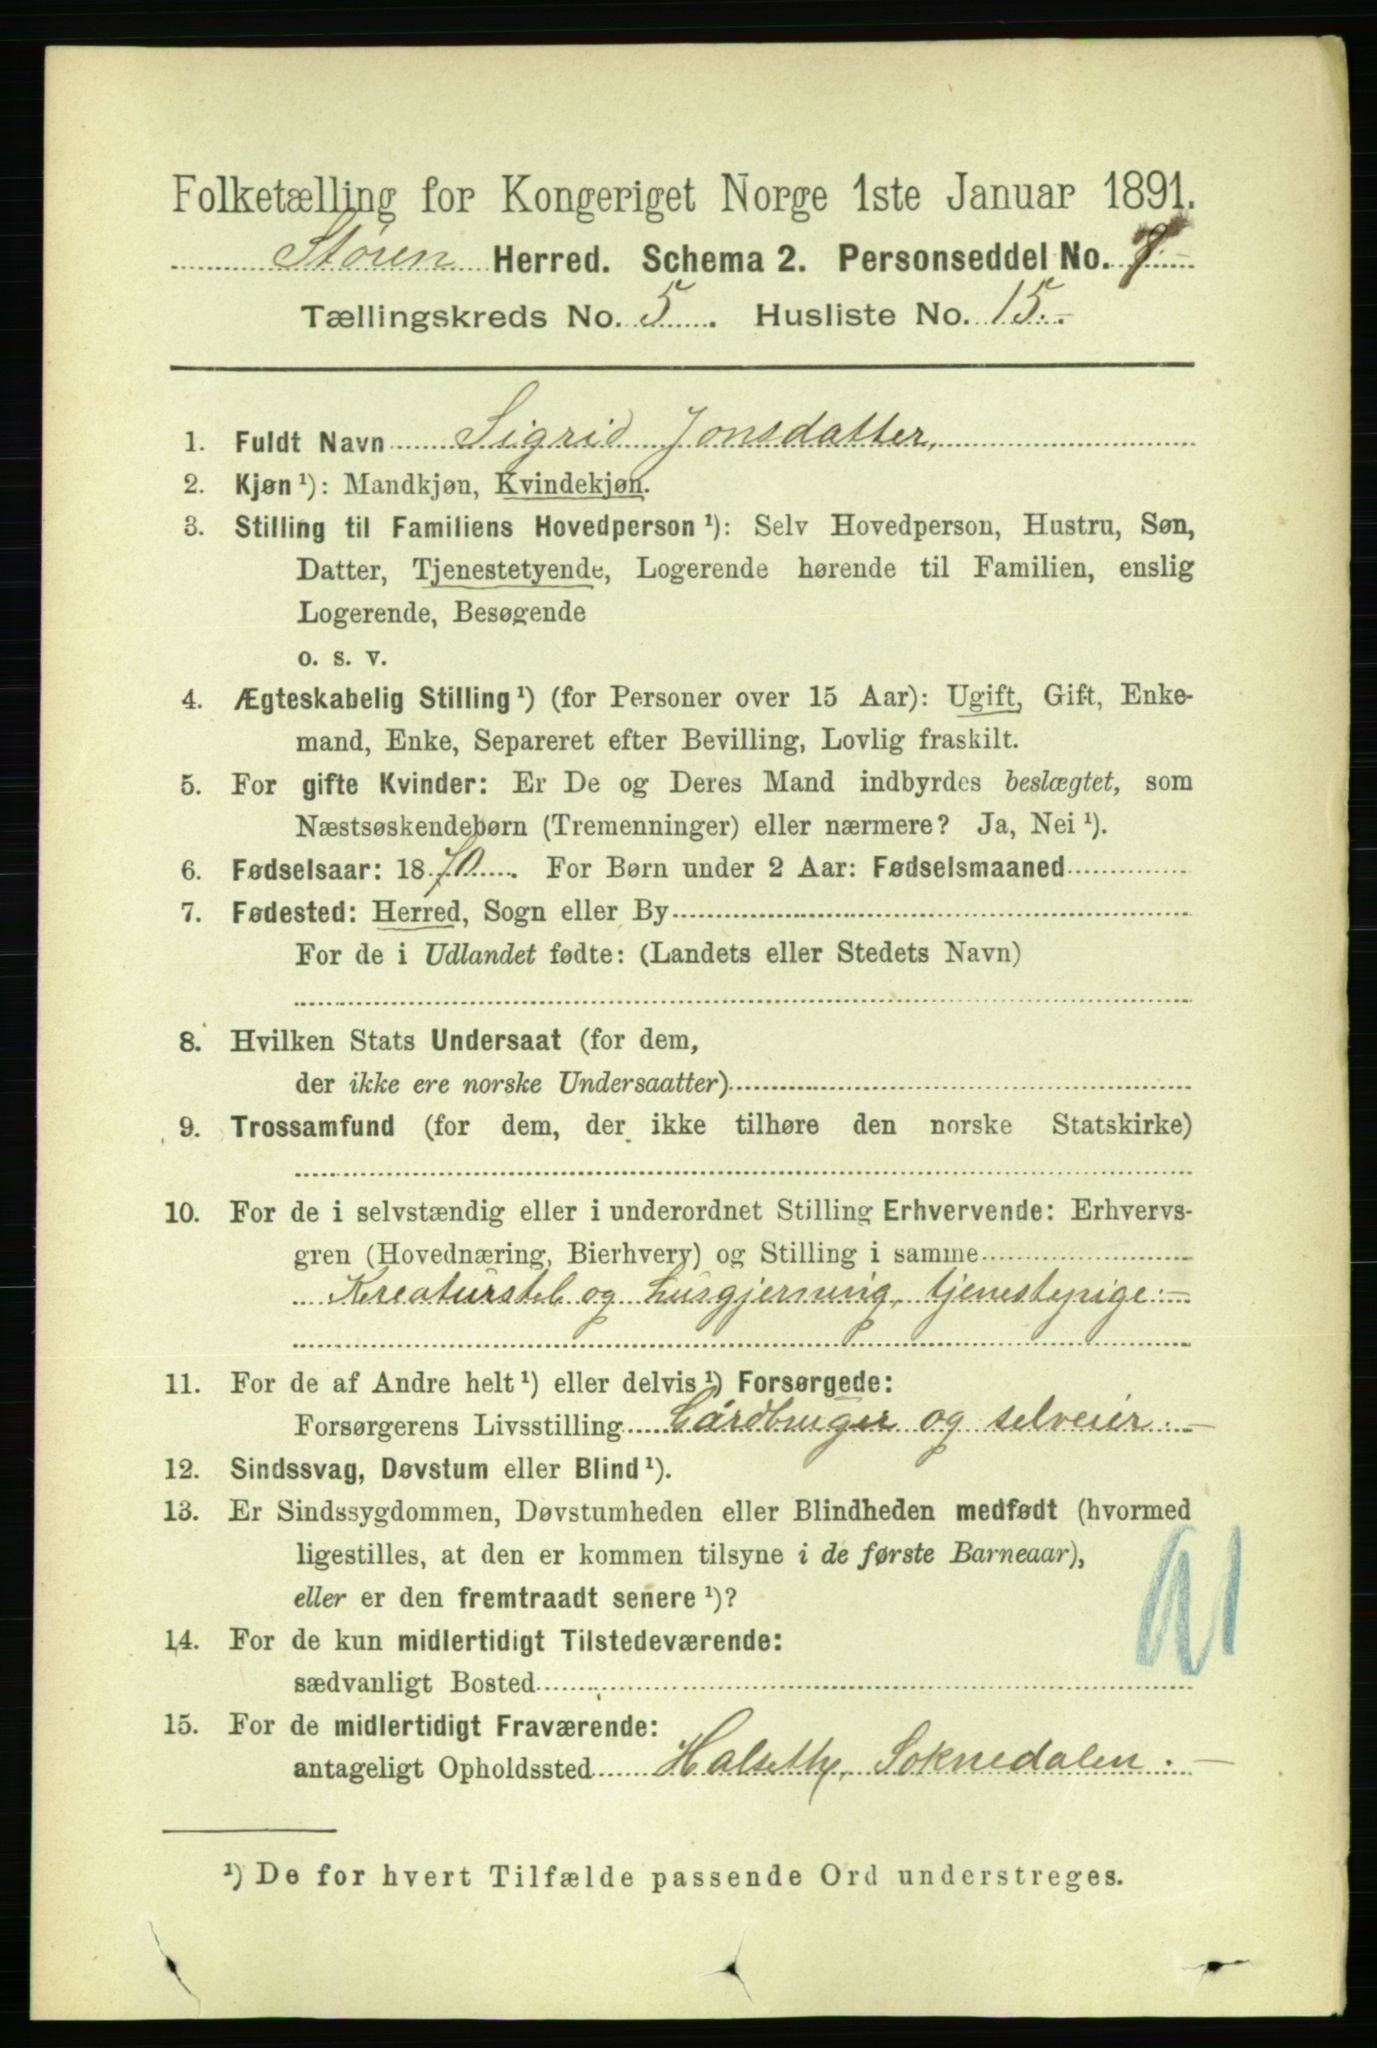 Folketælling for Kongeriget Norge 1ste Januar 1891.
Støren Herred. Schema 2. Personseddel No.
Tællingskreds No. 5. Husliste No. 15.-
1. Fuldt Navn Sigrid Jonsdatter,
2. Kjøn ¹): Mandkjøn, Kvindekjøn.
3. Stilling til Familiens Hovedperson ¹): Selv Hovedperson, Hustru, Søn,
Datter, Tjenestetyende, Logerende hørende til Familien, enslig
Logerende, Besøgende
o. s. v.
4. Ægteskabelig Stilling ¹) (for Personer over 15 Aar): Ugift, Gift, Enke-
mand, Enke, Separeret efter Bevilling, Lovlig fraskilt.
5. For gifte Kvinder: Er De og Deres Mand indbyrdes beslægtet, som
Næstsøskendebørn (Tremenninger) eller nærmere? Ja, Nei ¹).
6. Fødselsaar: 1870. For Børn under 2 Aar: Fødselsmaaned
7. Fødested: Herred, Sogn eller By
For de i Udlandet fødte: (Landets eller Stedets Navn)
8. Hvilken Stats Undersaat (for dem,
der ikke ere norske Undersaatter)
9. Trossamfund (for dem, der ikke tilhøre den norske Statskirke)
10. For de i selvstændig eller i underordnet Stilling Erhvervende: Erhvervs-
gren (Hovednæring, Bierhverv) og Stilling i samme
Kreaturstel og husgjerning, tjenestepige.-
11. For de af Andre helt ¹) eller delvis ¹) Forsørgede:
Forsørgerens Livsstilling Gårdbruger og selveier.-
12. Sindssvag, Døvstum eller Blind ¹).
13. Er Sindssygdommen, Døvstumheden eller Blindheden medfødt (hvormed
ligestilles, at den er kommen tilsyne i de første Barneaar),
eller er den fremtraadt senere ¹)?
14. For de kun midlertidigt Tilstedeværende:
sædvanligt Bosted
15. For de midlertidigt Fraværende:
antageligt Opholdssted Halseth, Soknedalen.-
¹) De for hvert Tilfælde passende Ord understreges.